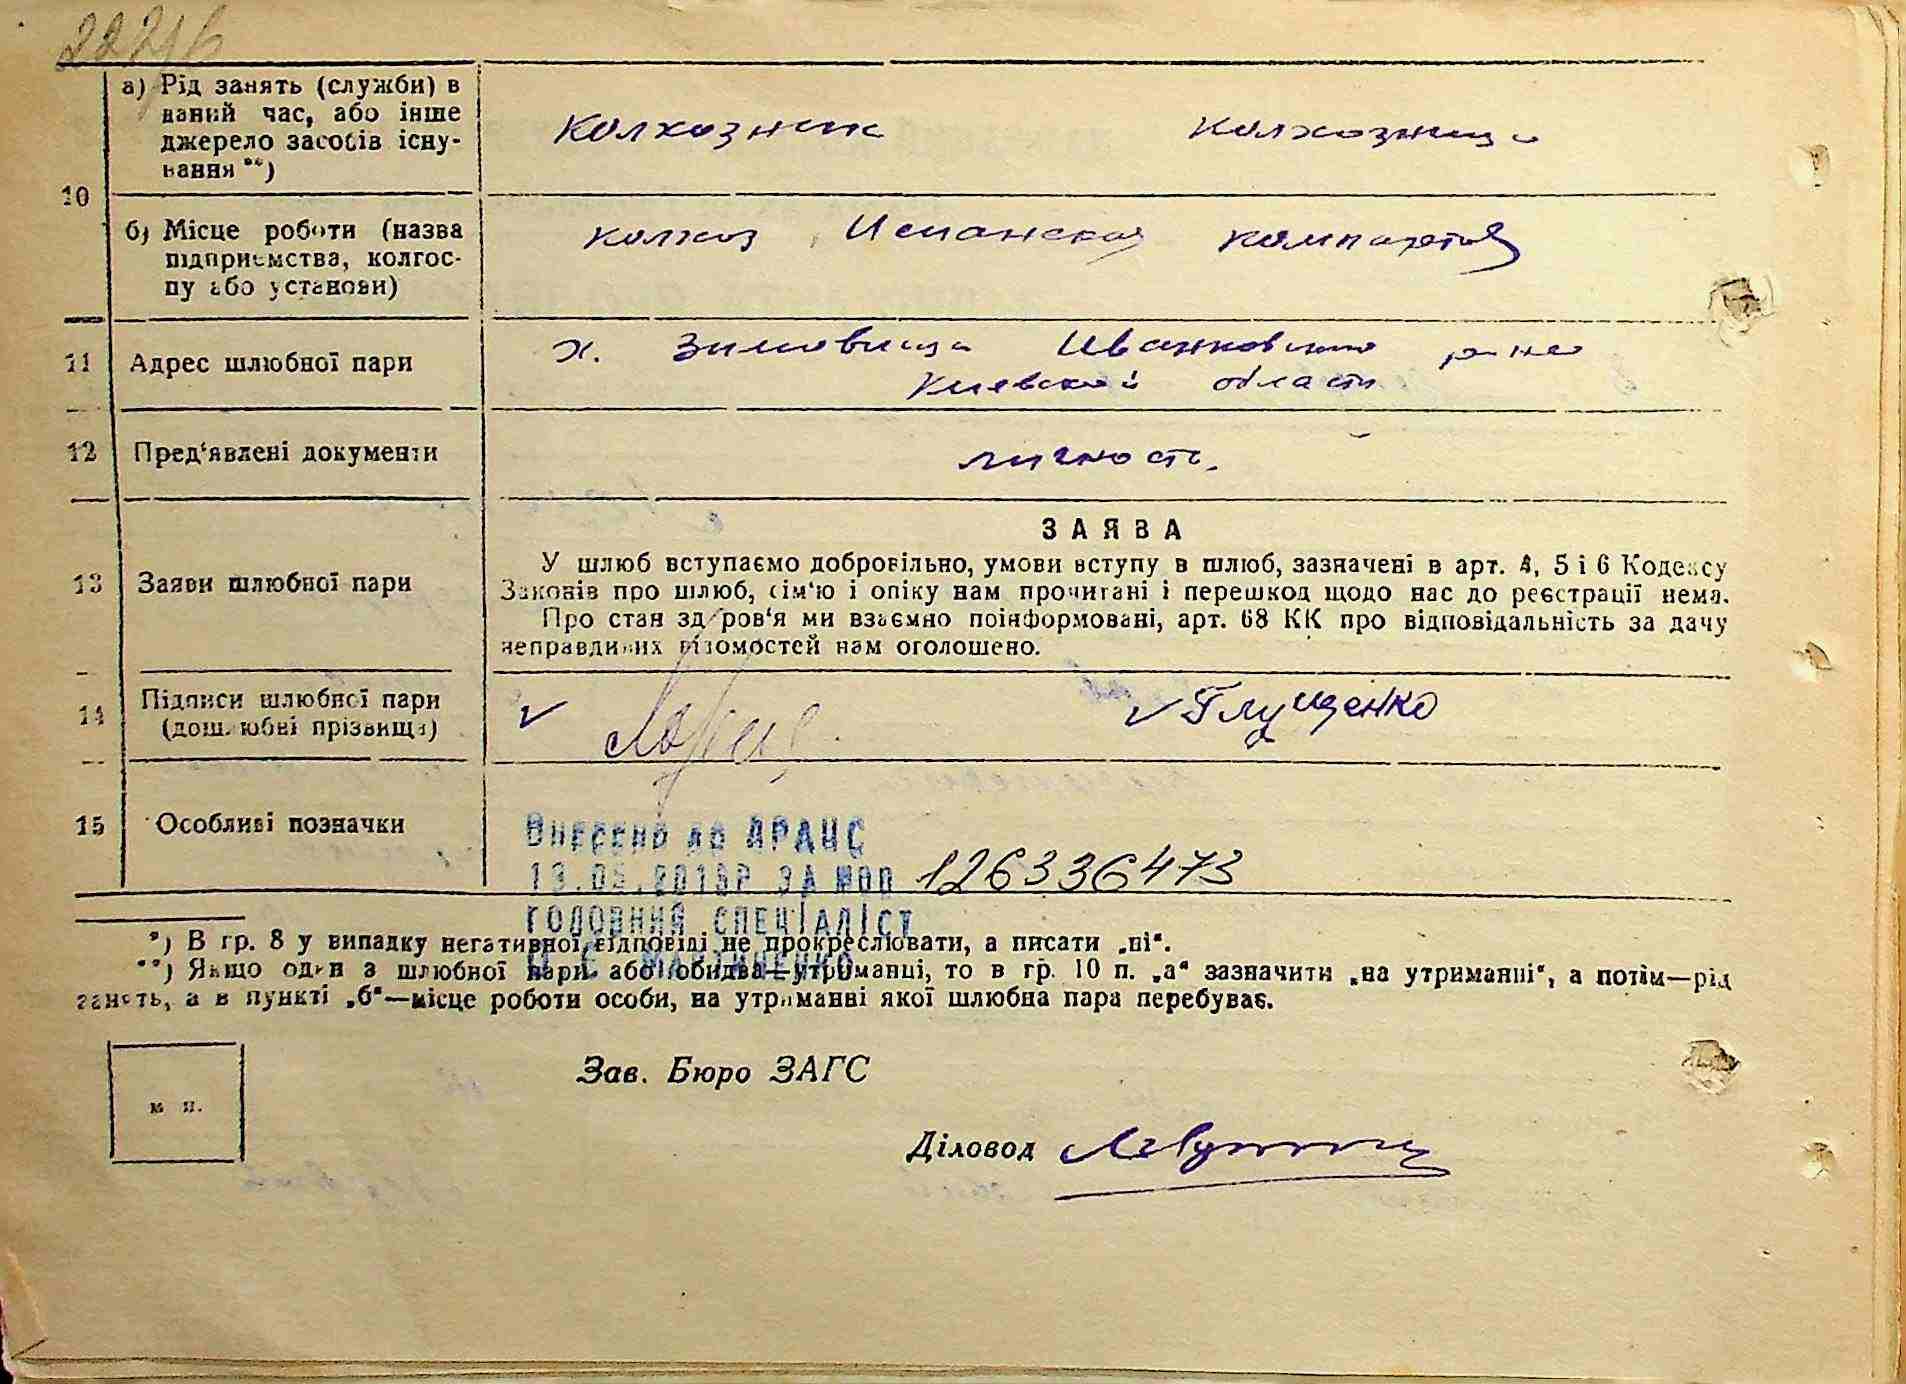 222/6
а) Рід занять (служби) в
даний час, або інше
джерело засобів існу-
вання **)
колхозник колхозница
10
б) Місце роботи (назва
підприємства, колгос-
пу або установи)
колхоз Испанская компартия
11 Адрес шлюбної пари
х. Зимовища Иванковского р-на
Киевской области
12 Пред‘явлені документи
личность
ЗАЯВА
13 Заяви шлюбної пари
У шлюб вступаємо добровільно, умови вступу в шлюб, зазначені в арт. 4, 5 і 6 Кодексу
Законів про шлюб, сім‘ю і опіку нам прочитані і перешкод щодо нас до реєстрації нема.
Про стан здоров‘я ми взаємно поінформовані, арт. 68 КК про відповідальність за дачу
неправдивих відомостей нам оголошено.
14 Підписи шлюбної пари
(дошлюбні прізвища)
Глущенко
15 Особливі позначки
Внесено до ДРАЦС
за №оп 126336473
головний спеціаліст
*) В гр. 8 у випадку негативної відповіді не прокреслювати, а писати „ні“.
**) Якщо один з шлюбної пари або обидва—утриманці, то в гр. 10 п. „а“ зазначити „на утриманні“, а потім—рід
занять, а в пункті „б“—місце роботи особи, на утриманні якої шлюбна пара перебуває.
Зав. Бюро ЗАГС
м п.
Діловод